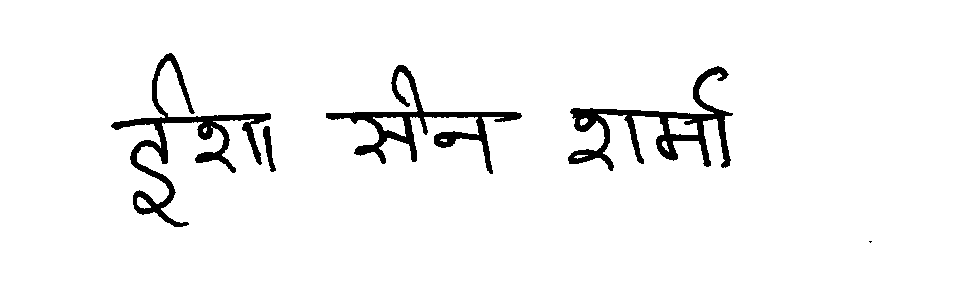 ईशा सीन शर्मा